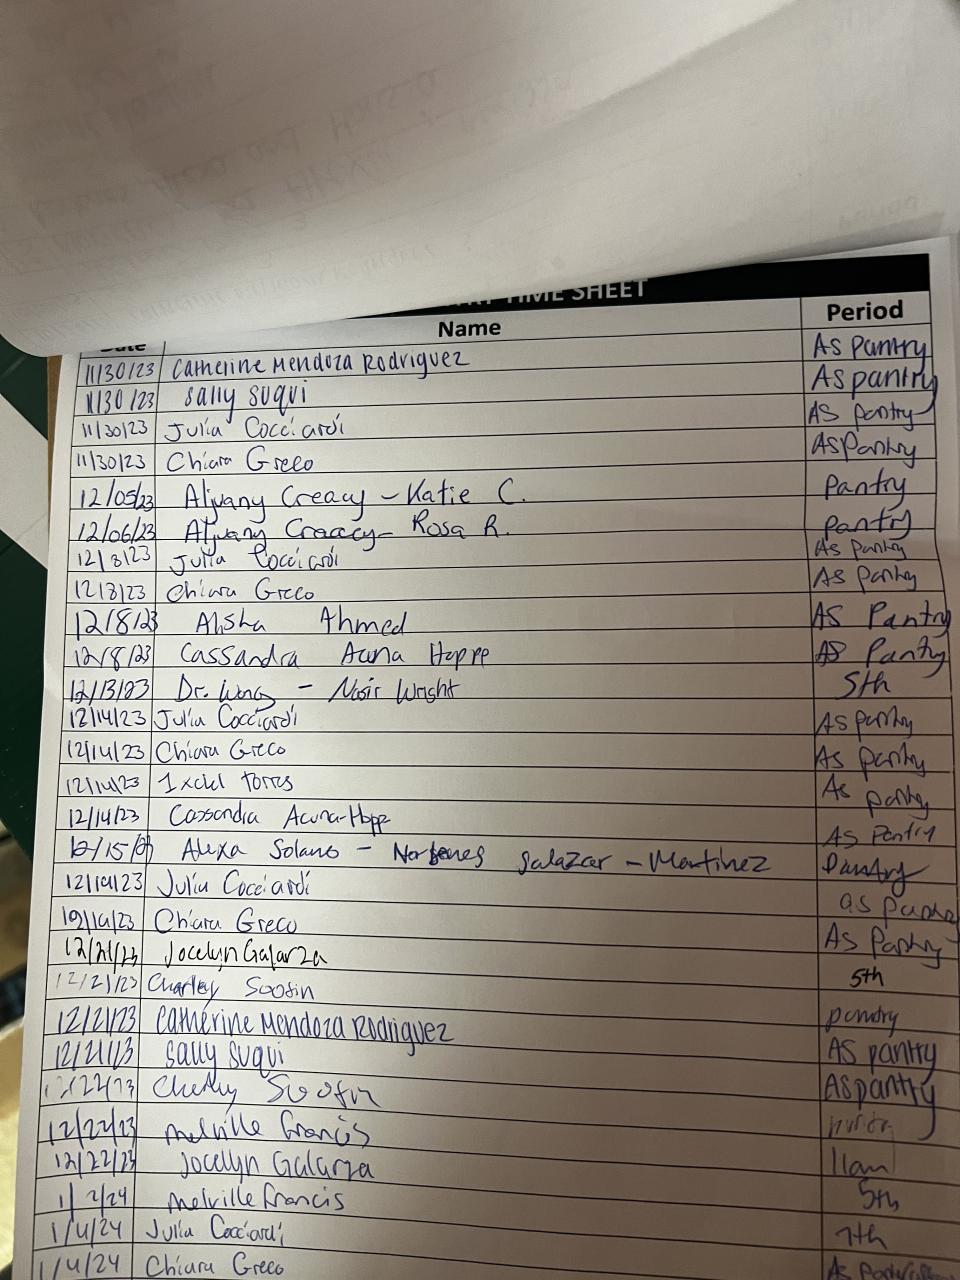 TIME SHEET
Name Period
11/30/23 Catherine Mendoza Rodriguez AS pantry
11/30/23 Sally Suqui AS pantry
11/30/23 Julia Cocciardi AS pantry
11/30/23 Chiara Greco AS Pantry
12/05/23 Aljvany Creacy - Katie C. pantry
12/06/23 Aljvany Creacy - Rosa R. pantry
12/8/23 Julia Cocciardi AS pantry
12/8/23 Chiara Greco AS pantry
12/8/23 Alisha Ahmed AS Pantry
12/8/23 Cassandra Acuna Hopp AS Pantry
12/13/23 Dr. Wong - Nasir Wright 5th
12/14/23 Julia Cocciardi AS pantry
12/14/23 Chiara Greco AS pantry
12/14/23 Ixchel Torres As pantry
12/14/23 Cassandra Acuna-Hopp AS Pantry
12/15/23 Alexa Solano - Salazar - Martinez Pantry
12/19/23 Julia Cocciardi as pantry
Chiara Greco AS Pantry
12/21/23 Jocelyn Galarza 5th
12/21/23 Charley Soofin pantry
12/21/23 Catherine Mendoza Rodriguez AS pantry
12/21/23 Sally Suqui AS pantry
12/22/23 Soofin
12/22/23 Melville Francis 11am
12/22/23 Jocelyn Galarza 5th
1/2/24 Melville Francis 7th
1/4/24 Julia Cocciardi
1/4/24 Chiara Greco